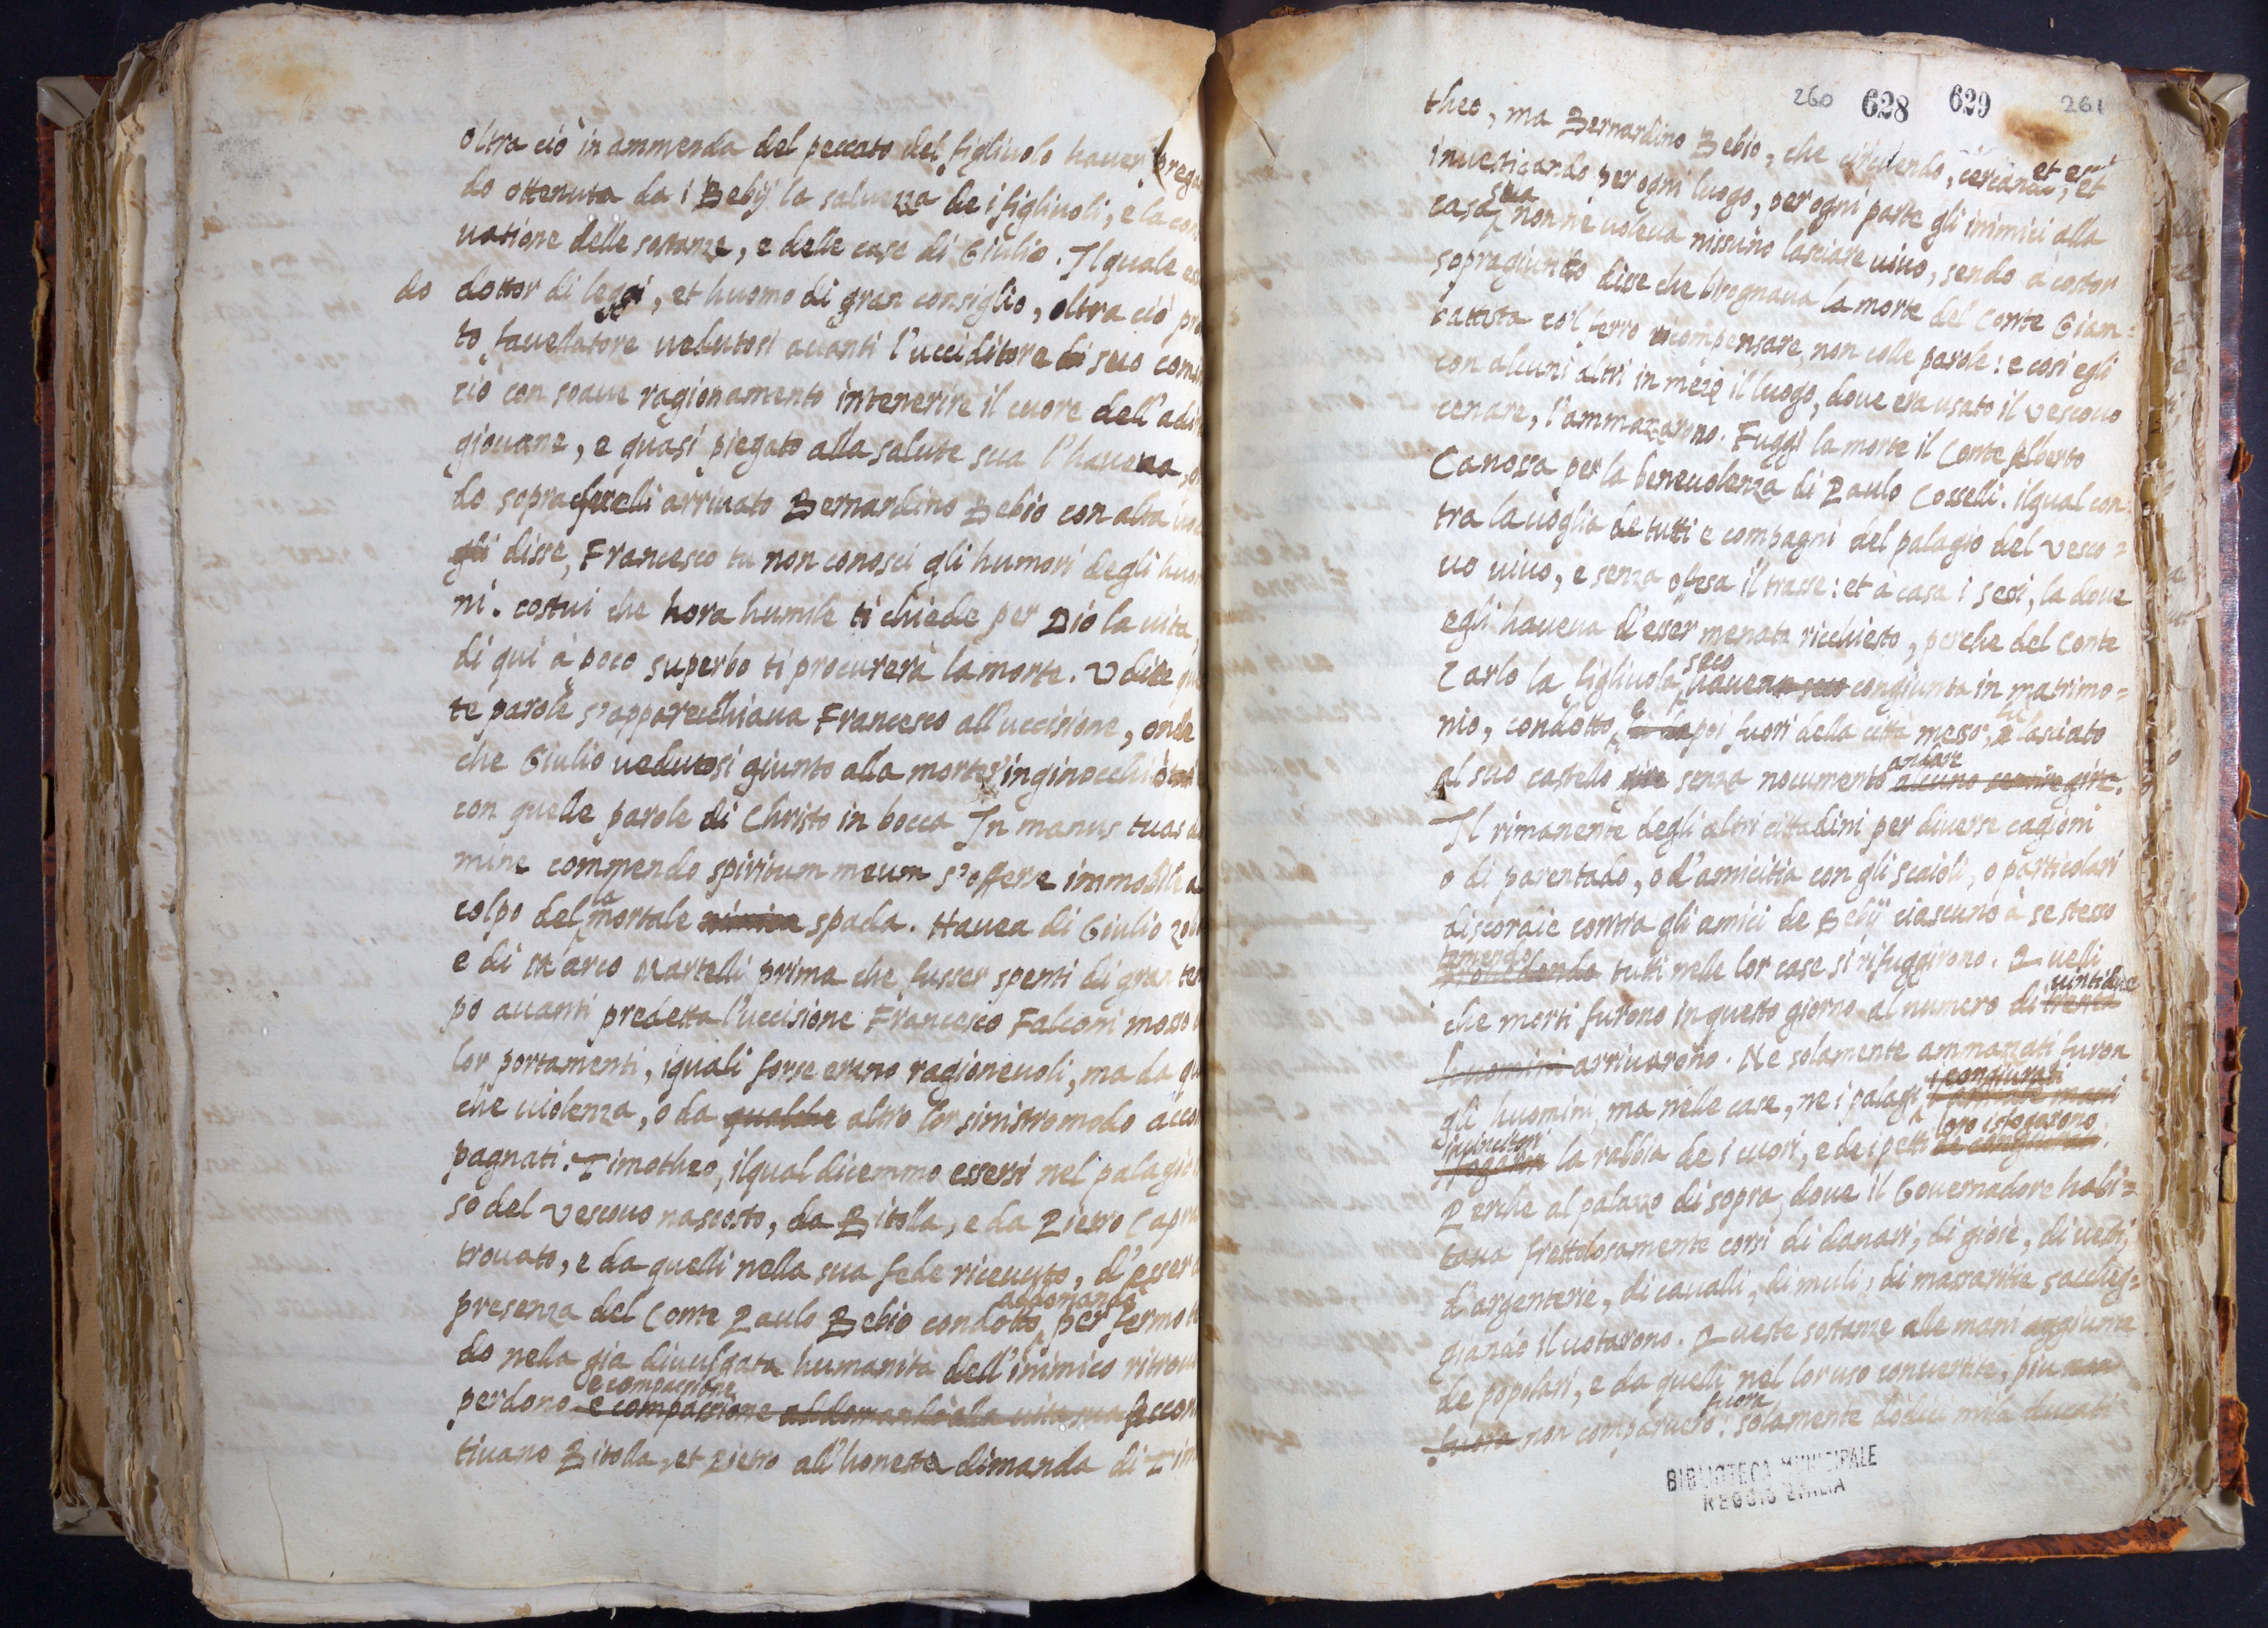 oltra ciò in ammenda del peccato del figliuolo hauer prega
do ottenuta da i Bebij la saluezza de i figliuoli, e la con
uatione delle sostanze, e delle case di Giulio. Il quale es
do dottor di leggi, et huomo di gran consiglio, oltra ciò pro
to fauellatore uedutosi auanti l'ucciditore di suo comin
ciò con soaue ragionamento intenerire il cuore dell'adir
giouane, e quasi piegato alla salute sua l'haueua,
do sopra arriuato Bernardino Bebio con alta uoce
gli disse, Francesco tu non conosci gli humori degli huo
ni. costui che hora humile ti chiede per Dio la uita,
di qui à poco superbo ti procurerà la morte. Udite que
te parole s'apparecchiaua Francesco all'uccisione, onde
che Giulio uedutosi giunto alla morte s'inginocchiò
con quelle parole di Christo in bocca In manus tuas do
mine commendo spiritum meum s'offerse immobile a
la
colpo del mortale spada. Hauea di Giulio zob
e di Marco Martelli prima che fusser spenti di gran tem
po auanti predetta l'uccisione Francesco Falconi mosso
lor portamenti, i quali forse erano ragioneuoli, ma da qu
che uiolenza, o da qualche altro lor sinistro modo accom
pagnati. Timotheo, ilqual dicemmo essersi nel palagio
so del Vescouo nascosto, da Pitolla, e da Pietro Capr
trouato, e da quelli nella sua fede riceuuto, d'esser
addomandò
presenza del Conte Paulo Bebio condotto per fermo
do nella già diuulgata humanità dell'inimico ritrou
e compassione
perdono e compassione addomandò alla uita sua Accon
tiuano Pitolla, et Pietro all'honesta dimanda di Tim
260 628 629 261
theo, ma Bernardino Bebio, che cercando, et
et essi
inuestigando per ogni luogo, per ogni parte gli inimici alla
sua
casa non ne uoleua nissuno lasciare uiuo, sendo à costor
sopragiunto disse che bisognaua la morte del Conte Gian=
battista co'l ferro ricompensare, non colle parole: e così egli
con alcuni altri in mezo il luogo, doue era usato il Vescouo
cenare, l'ammazarono. Fuggì la morte il Conte Alberto
Canossa per la beneuolenza di Paulo Cosselli. ilqual con=
tra la uoglia de tutti e compagni del palagio del Vesco=
uo uiuo, e senza offesa il trasse: et à casa i sessi, la doue
egli haueua d'esser menato ricchiesto, perche del Conte
seco
Carlo la figliuola haueua seco congiunta in matrimo=
nio, condotto, e poi fuori della città messo, lasciato
andare
al suo castello gire senza nocumento alcuno gire.
Il rimanente degli altri cittadini per diuerse cagioni
o di parentado, o d'amicitia con gli Scaioli, o particolari
discordie contra gli amici de Bebij ciascuno à se stesso
temendo
tutti nelle lor case si rifuggirono. Quelli
uintidue
che morti furono in questo giorno al numero di trenta
huomini arriuarono. Ne solamente ammazzati furon
i congiurati
gli huomini, ma nelle case, ne i palagi
loro isfogarono
la rabbia de i cuori, e de i petti
Perche al palazzo di sopra, doue il Gouernadore habi=
taua frettolosamente corsi di danari, di gioie, di uesti,
d'argenterie, di caualli, di muli, di massaritie saccheg=
giando il uotarono. Queste sostanze alle mani aggiunte
de popolari, e da quelli nel lor uso conuertite, piu
fuora
fuora non comparuero: solamente dodici mila ducati
BIBLIOTECA MUNICIPALE
REGGIO EMILIA